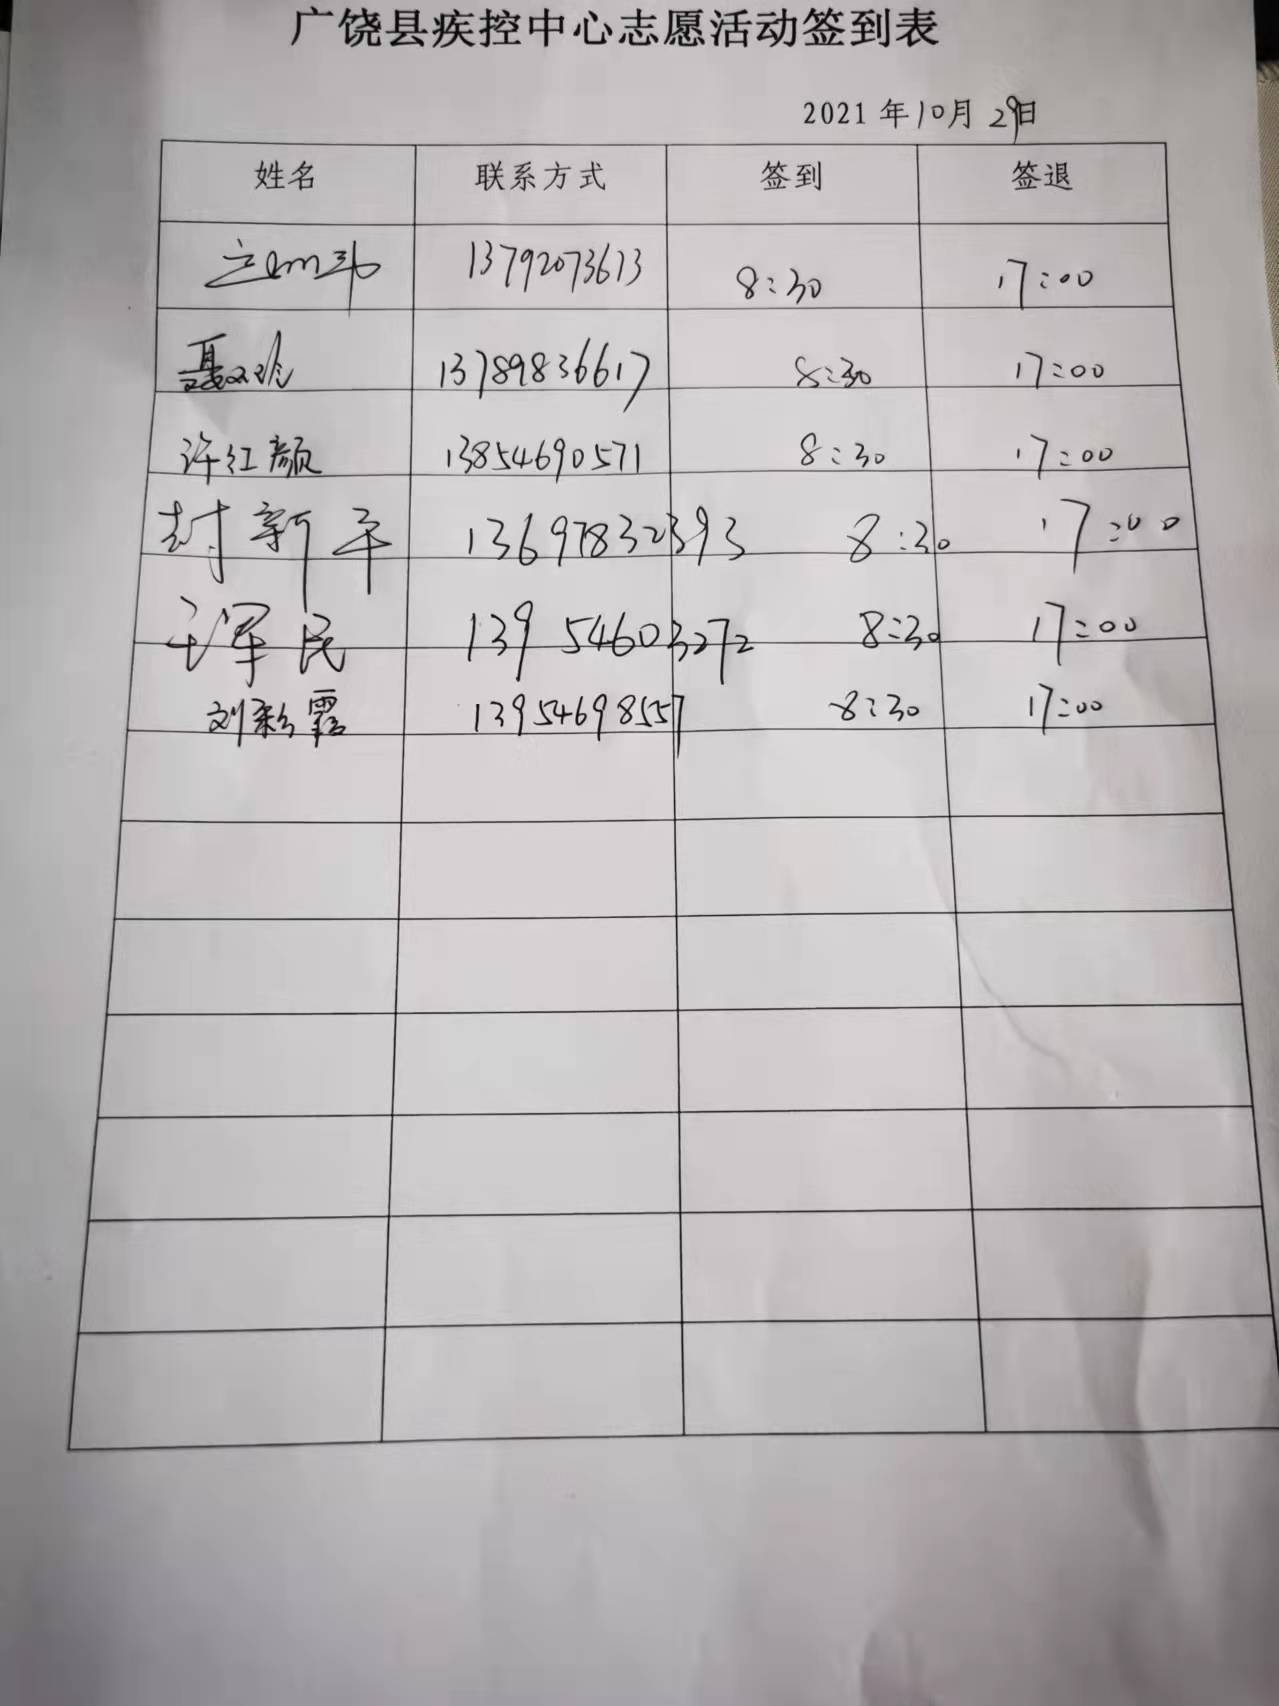 广饶县疾控中心志愿活动签到表
2021 年 10 月 29 日
姓名 联系方式 签到 签退
13792073613 8:30 17:00
聂双玲 13789836617 8:30 17:00
许红颜 13854690571 8:30 17:00
封新平 13697832393 8:30 17:00
军民 13954603272 8:30 17:00
刘彩霞 13954698557 8:30 17:00